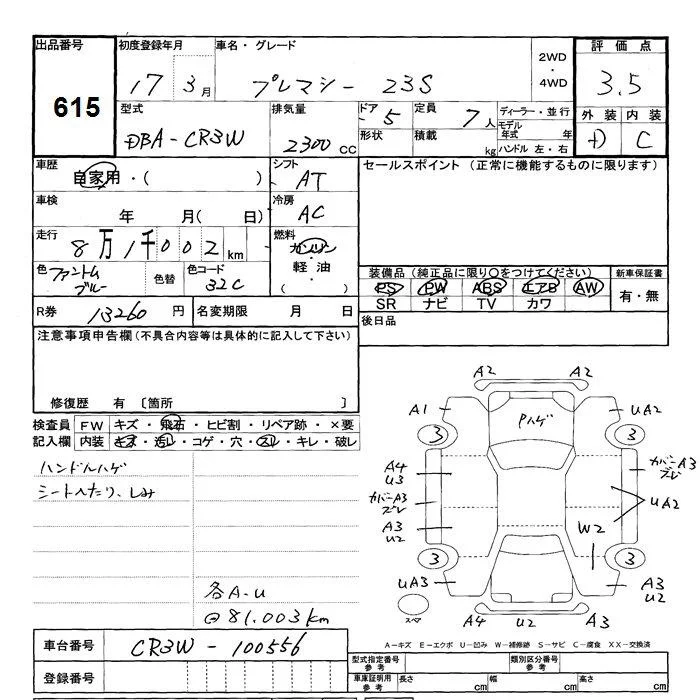 出品番号 初度登録年月 車名・グレード 2WD ・ 4WD 評価点
615 17 3月 プレマシー 23S 3.5
型式 排気量 ドア 定員 ディーラー・並行 外装 内装
DBA-CR3W 2300cc 5 7人 モデル年式 年 D C
形状 積載 kg ハンドル 左・右
車歴 自家用・( ) シフト AT セールスポイント (正常に機能するものに限ります)
車検 年 月( 日) 冷房 AC
走行 8万1千002km 燃料 ガソリン・軽油・( )
色 ファントムブルー 色替 色コード 32C 装備品(純正品に限り○をつけてください) 新車保証書
PS PW ABS エアB AW 有・無
SR ナビ TV カワ
R券 13260円 名変期限 月 日 後日品
注意事項申告欄(不具合内容等は具体的に記入して下さい)
修復歴 有 〔箇所
検査員記入欄 FW キズ・飛石・ヒビ割・リペア跡・×要
内装 キズ・汚レ・コゲ・穴・スレ・キレ・破レ
ハンドルハゲ
シートへたり、しみ
各A-U
@81.003km
A2 A2
A1 Pハゲ UA2
3 3
A4 U3 カバーA3 ズレ
カバーA3 ズレ UA2
A3 U2 W2
3 3
UA3 A3 U2
スペア A4 U2 A3
車台番号 CR3W-100556
A-キズ E-エクボ U-凹み W-補修跡 S-サビ C-腐食 XX-交換済
登録番号
型式指定番号 参考 類別区分番号 参考
車庫証明用 参考 長さ cm 幅 cm 高さ cm